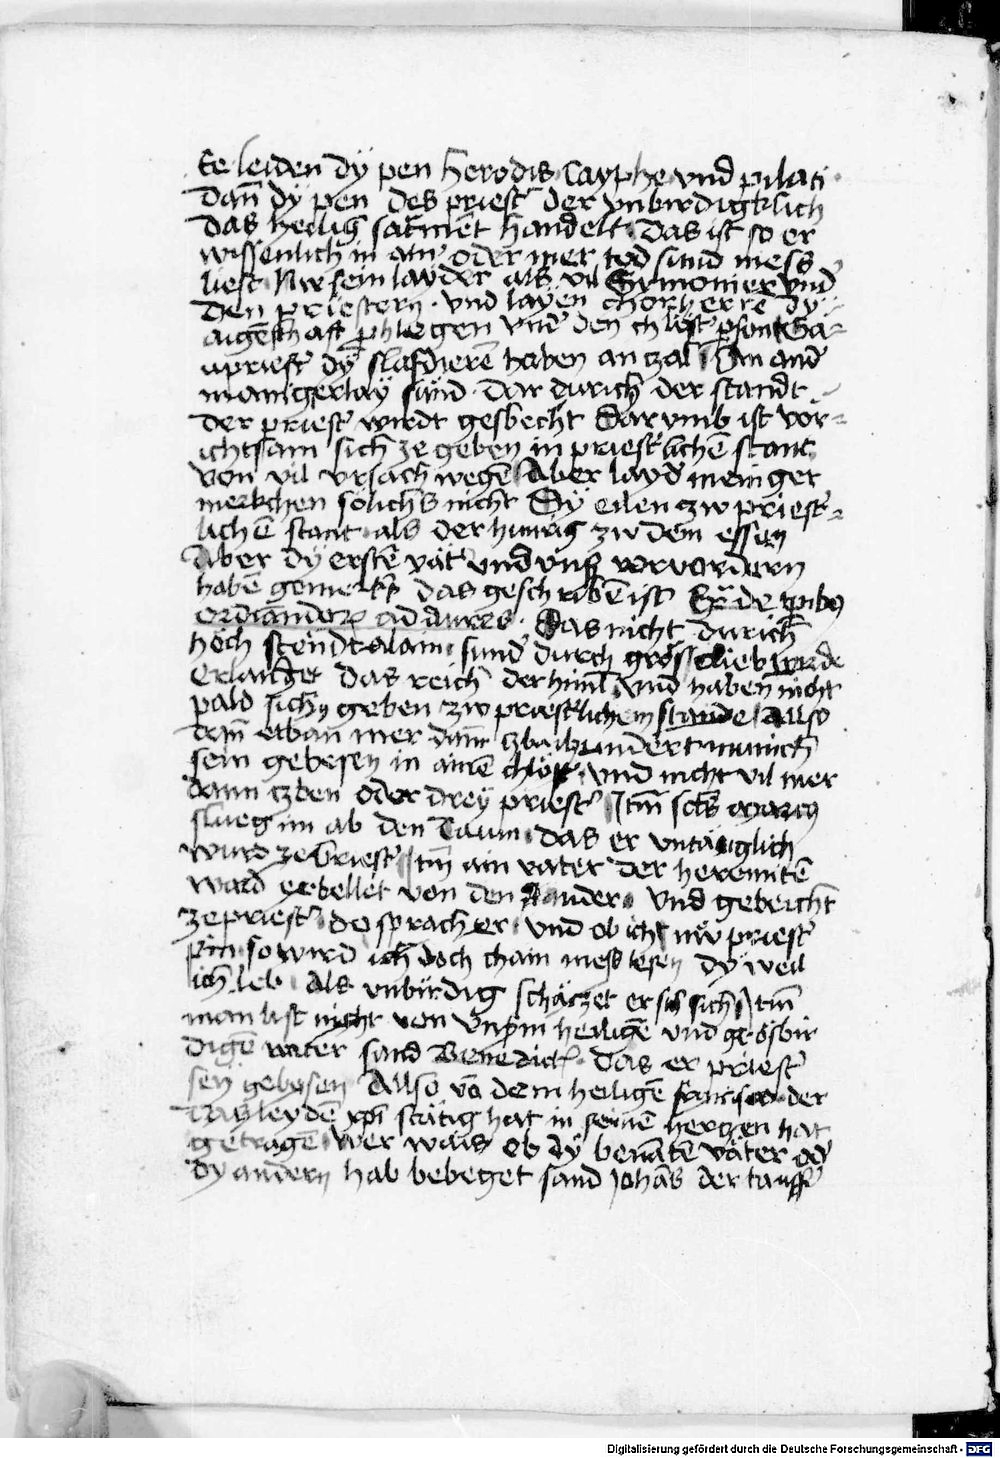 te leiden dÿ pen herodis Cayphe vnd pilati
dañ dÿ pen des priest̃ der vnbirdigklich
das heilig̃ sac̃ment handelt das ist so er
wissenlich in ain̄ oder mer tod sund mess
liest Nw sein layder als vil Symonier vnd̃
den priestern · vnd layen chorherre dy
aigẽschaft phlegen vnd̃ den
upriest̃ dÿ haben an czal Vm and̃
manigerlaÿ sünd · dar durich der standt
der priest̃ wirdt gesbecht Darvmb ist vor
ichtsam sich ze geben in priest̃lichẽ stant
von vil vrsach wegẽ Aber layd̃ meniger
merkchen sölichs nicht Dÿ eilen czw priest
lichẽ stant als der hunrig zw dem essen
Aber dÿ erstẽ vät̃ vnd vns̃ vorvordern
habẽ gemerkt das geschribẽ ist Ex̃ de
ordiandoꝝ ad aures · Das nicht durich
höch stẽndt alain sund̃ durch gröss lieb wirde
erlanget das reich der himl̃ vnd haben nicht
pald sich geben zw priest̃lichem stande Allso
dañ etban mer dañ czbaihundert munich
sein gebesen in ainẽ chlöst̃ · vnd nicht vil mer
dann czben oder dreÿ priest̃ Itm̃ sc̃s marcus
slueg im ab den daum das er vntäuglich
wurd ze briest̃ Itm̃ ain vater der heremitẽ
ward erbellet von den andern vnd gebeicht
ze priest̃ do sprach er · vnd ob ich nw priest̃
pin so wird ich doch chain mess lesen dÿ weil
ich leb Als vnbirdig schäczet er sich Itm̃
man list nicht von vnsm̃ heiligẽ vnd grösbir
digẽ vater sand Benedict · das er priest̃
seÿ gebesen Allso võ dem heiligẽ francisco der
das leydẽ xp̃i stätig hat in seinẽ herczen hat
getragẽ wer wais ob dÿ benãtẽ väter od̃
dy andern hab bebeget sand Johãs der tauff̃
Digitalisierung gefördert durch die Deutsche Forschungsgemeinschaft - DFG